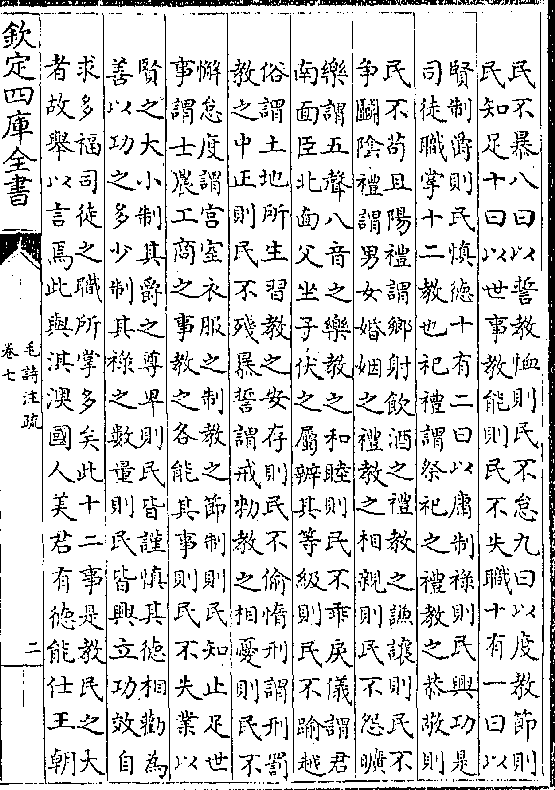 民不暴八曰以誓教恤則民不怠九曰以度教節則
民知足十曰以世事教能則民不失職十有一曰以
賢制爵則民慎德十有二曰以庸制祿則民興功是
司徒職掌十二教也祀禮謂祭祀之禮教之恭敬則
民不苟且陽禮謂鄉射飲酒之禮教之謙讓則民不
爭鬭陰禮謂男女婚姻之禮教之相親則民不怨曠
樂謂五聲八音之樂教之和睦則民不乖戾儀謂君
南面臣北面父坐子伏之屬辨其等級則民不踰越
俗謂土地所生習教之安存則民不偷惰刑謂刑罰
教之中正則民不殘暴誓謂戒勑教之相憂則民不
懈怠度謂宫室衣服之制教之節制則民知止足世
事謂士農工商之事教之各能其事則民不失業以
賢之大小制其爵之尊卑則民皆謹慎其德相勸為
善以功之多少制其祿之數量則民皆興立功效自
求多福司徒之職所掌多矣此十二事是教民之大
者故舉以言焉此與淇澳國人美君有德能仕王朝
欽定四庫全書
毛詩注疏
卷七
二